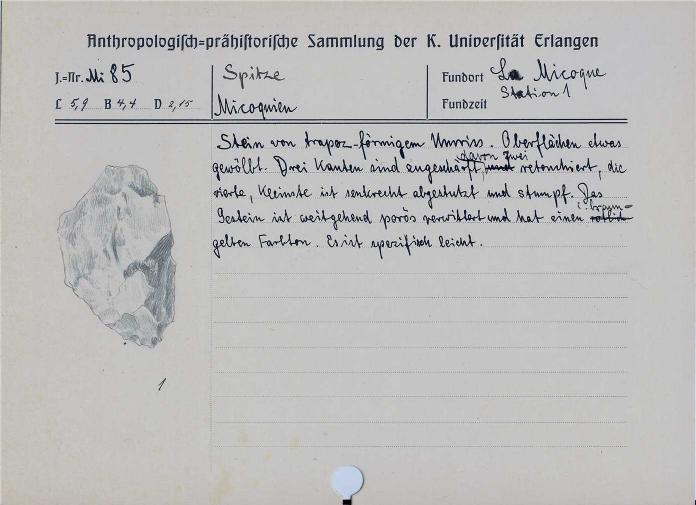 Anthropologisch=prähistorische Sammlung der K. Universität Erlangen
J.=Nr. Mi 85
L 5,9 B 4,4 D 2,15
Spitze
Micoquien
Fundort La Micoque
Station 1
Fundzeit
Stein von trapez-förmigem Umriss. Oberflächen etwas
gewölbt. Drei Kanten sind zugeschärft, davon zwei retouchiert, die
vierte, kleinste ist senkrecht abgestutzt und stumpf. Das
Gestein ist weitgehend porös verwittert und hat einen braun=
gelben Farbton. Es ist spezifisch leicht.
1